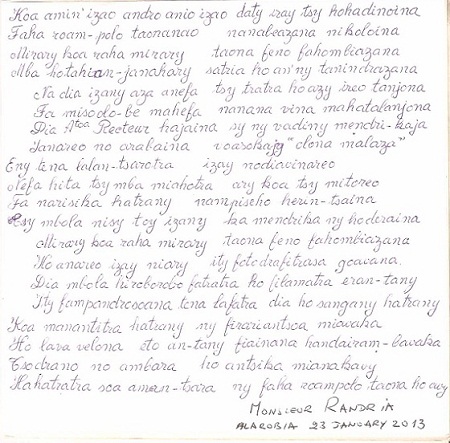 Koa amin' izao andro anio izao daty izay tsy hohadinoina
Faha roam-polo taonanao nanabeazana nikoloina
Mirary koa raha mirary taona feno fahombiazana
Mba hotahian-janahary satria ho an'ny tanindrazana
Na dia izany aza anefa tsy tratra ho azy ireo tanjona
Fa misedo-be mahefa nanana vina mahatalanjona
Dia Atoa Recteur hajaina sy ny vadiny mendri-kaja
Ianareo no arabaina voasokajy "olona malaza"
Eny tena lalan-tsarotra izay nodiavinareo
Nefa hita tsy mba miahotra ary koa tsy mitoreo
Fa narisika hatrany nampiseho herin-tsaina
Tsy mbola nisy toy izany ka mendrika ny hoderaina
Mirary koa raha mirary taona feno fahombiazana
Ho anareo izay niary ity fotodrafitrasa goavana
Dia mbola hiroborobo fatratra ho filamatra eran-tany
Ity fampandrosoana tena lafatra dia ho sangany hatrany
Koa manantitra hatrany ny firariantsoa miavaka
Ho lava velona eto an-tany fiainana handairam-bavaka
Tsodrano no ambara ho antsika mianakavy
Hahatratra soa aman-tsara ny faha roampolo taona ho avy
MONSIEUR RANDRIA
ALAROBIA 23 JANUARY 2013